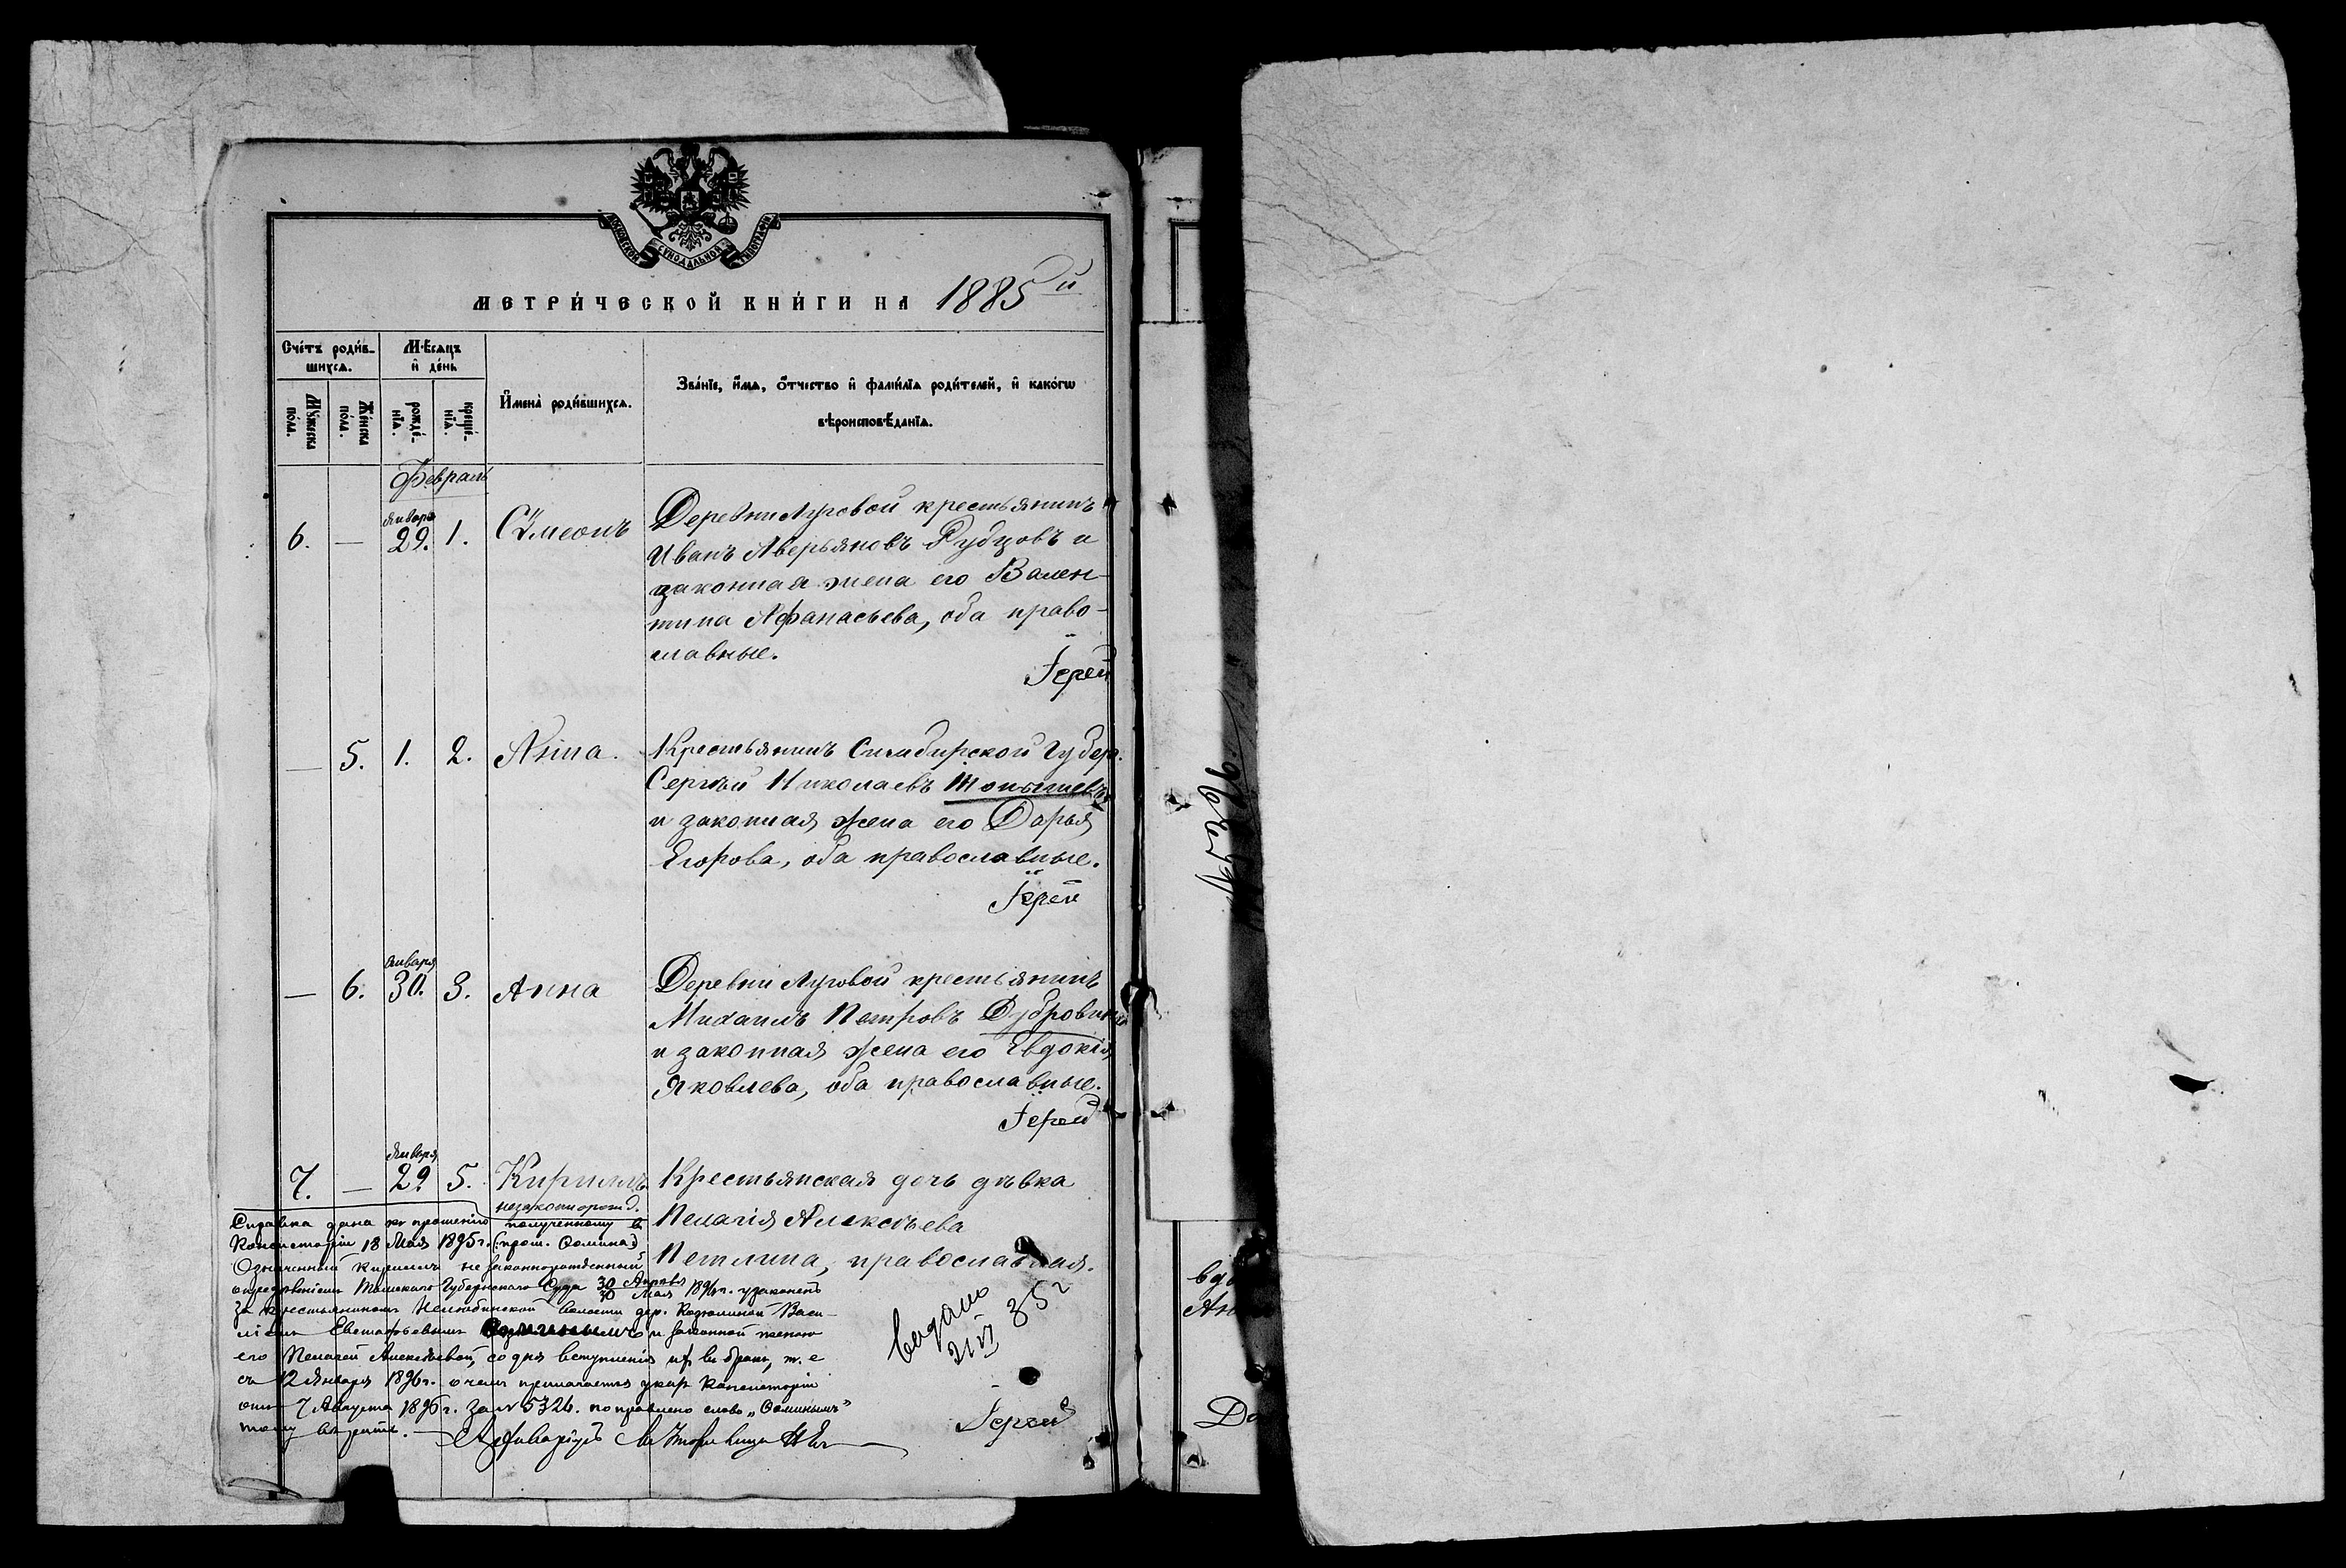 МОСКОВСКОЙ СѴНОДАЛЬНОЙ ТИПОГРАФІИ
МЕТРИ́ЧЕСКОЙ КНИ́ГИ НА 1885й
Сче́тъ роди́в-
шихсѧ.
Мѣ́сѧцъ
и҆ де́нь
И҆мена̀ роди́вшихсѧ.
Зва́нїе, и҆́мѧ, ѻ҆́тчество и҆ фами́лїѧ роди́телей, и҆ како́гѡ
вѣроисповѣ́данїѧ.
Мꙋ́жеска
по́ла.
Же́нска
по́ла.
рожде́-
нїѧ.
креще́-
нїѧ.
Февраль
6. — Января 29. 1. Сѵмеонъ
Деревни Луговой крестьянинъ
Иванъ Аверьяновъ Рубцовъ и
законная жена его Вален-
тина Афанасьева, оба право-
славные.
Іерей
— 5. 1. 2. Анна.
Крестьянинъ Симбирской Губер.
Сергѣй Николаевъ
и законная жена его Дарья
Егорова, оба православные.
Іерей
— 6. Января 30. 3. Анна
Деревни Луговой крестьянинъ
Михаилъ Петровъ Дубровинъ
и законная жена его Евдокія
Яковлева, оба православные.
Іерей
7. — Января 29. 5. Кириллъ
незаконнорожд.
Крестьянская дочь дѣвка
Пелагія Алексѣева
Петлина, православная.
Справка дана по прошенію полученному в
Консисторіи 18 Мая 1895 г. (прош. Сомина)
Означенный Кириллъ незаконнорожденный
опредѣленіемъ Томскаго Губернскаго Суда 30 Апрѣля / 30 Мая 1896 г. узаконенъ
за крестьяниномъ Нелюбинской волости дер. Кодюлиной Васи-
ліемъ Евстафьевымъ Соминымъ и законной женою
его Пелагеей Алексѣевой, со дня вступленія их въ бракъ, т. е
съ 12 Января 1896 г. о чемъ прилагается указ Консисторіи
отъ 7 Августа 1896 г. за № 5326. поправлено слово „Соминымъ"
тому вѣрить. — Архиваріусъ
выдано
21 VI 35 г
Іерей